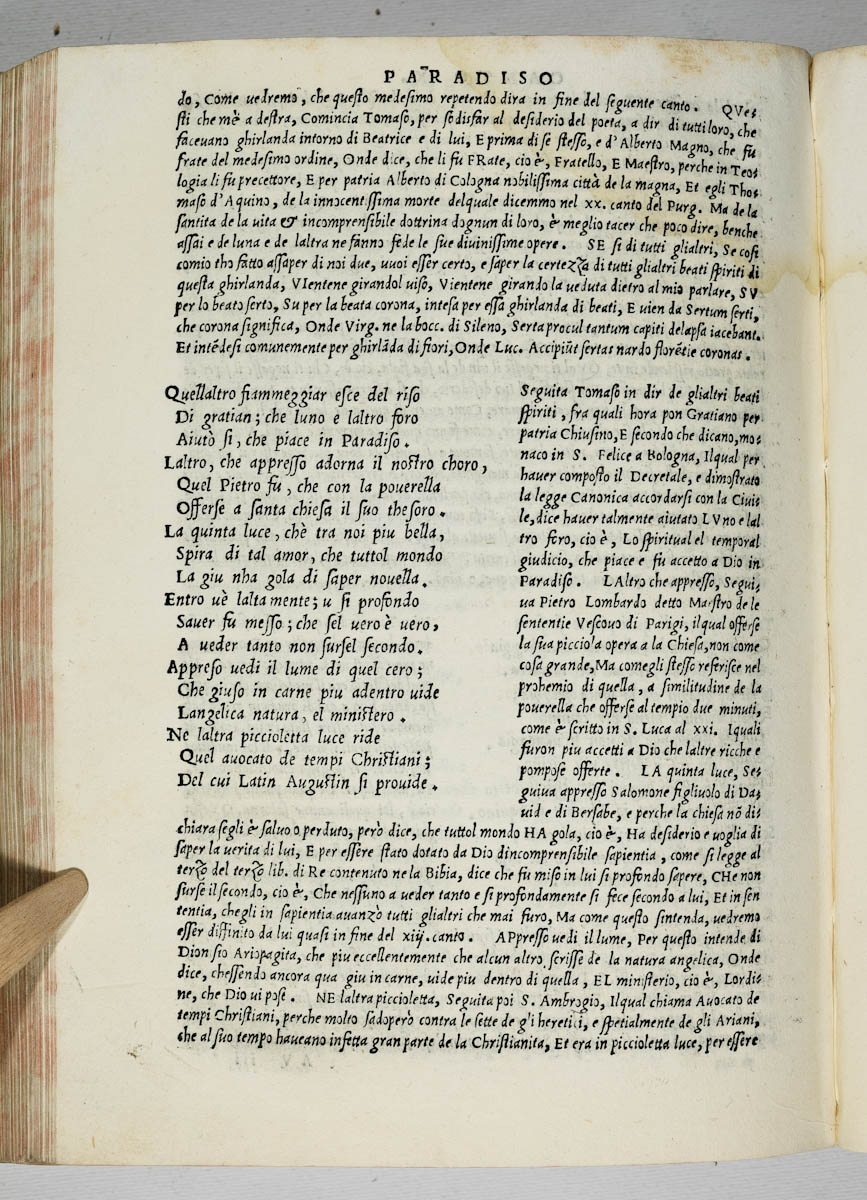 PARADISO
do, Come uedremo, che questo medesimo repetendo dira in fine del seguente canto. QVe-
sti che m'è a destra, Comincia Tomaso, per sodisfar al desiderio del poeta, a dir di tutti loro, che
faceuano ghirlanda intorno di Beatrice e di lui, E prima di se stesso, e d'Alberto Magno, che fu
frate del medesimo ordine, Onde dice, che li fu FRate, cio è, Fratello, E Maestro, perche in Teo-
logia li fu precettore, E per patria Alberto di Cologna nobilissima città de la magna, Et egli Tho-
maso d'Aquino, de la innocentissima morte delquale dicemmo nel xx. canto del Purg. Ma de la
santita de la uita & incomprensibile dottrina dognun di loro, è meglio tacer che poco dire, benche
assai e de luna e de laltra ne fanno fede le sue diuinissime opere. SE si di tutti glialtri, Se cosi
comio tho fatto assaper di noi due, uuoi esser certo, e saper la certezza di tutti glialtri beati spiriti di
questa ghirlanda, VIentene girandol uiso, Vientene girando la ueduta dietro al mio parlare, SV
per lo beato serto, Su per la beata corona, intesa per essa ghirlanda di beati, E uien da Sertum serti,
che corona significa, Onde Virg. ne la bocc. di Sileno, Serta procul tantum capiti delapsa iacebant.
Et intẽdesi comunemente per ghirlãda di fiori, Onde Luc. Accipiũt sertas nardo florẽtie coronas.
Quellaltro fiammeggiar esce del riso
Di gratian; che luno e laltro foro
Aiutò si, che piace in Paradiso.
Laltro, che appresso adorna il nostro choro,
Quel Pietro fu, che con la pouerella
Offerse a santa chiesa il suo thesoro.
La quinta luce, ch'è tra noi piu bella,
Spira di tal amor, che tuttol mondo
La giu nha gola di saper nouella.
Entro u'è lalta mente; u si profondo
Sauer fu messo; che sel uero è uero,
A ueder tanto non sursel secondo.
Appreso uedi il lume di quel cero;
Che giuso in carne piu adentro uide
Langelica natura, el ministero.
Ne laltra piccioletta luce ride
Quel auocato de tempi Christiani;
Del cui Latin Augustin si prouide.
Seguita Tomaso in dir de glialtri beati
spiriti, fra quali hora pon Gratiano per
patria Chiusino, E secondo che dicano, mo-
naco in S. Felice a Bologna, Ilqual per
hauer composto il Decretale, e dimostrato
la legge Canonica accordarsi con la Ciui-
le, dice hauer talmente aiutato LVno e lal
tro foro, cio è, Lo spiritual el temporal
giudicio, che piace e fu accetto a Dio in
Paradiso. LAltro che appresso, Segui-
ua Pietro Lombardo detto Maestro de le
sententie Vescouo di Parigi, ilqual offerse
la sua picciola opera a la Chiesa, non come
cosa grande, Ma comegli stesso referisce nel
prohemio di quella, a similitudine de la
pouerella che offerse al tempio due minuti,
come è scritto in S. Luca al xxi. Iquali
furon piu accetti a Dio che laltre ricche e
pompose offerte. LA quinta luce, Se-
guiua appresso Salomone figliuolo di Da-
uid e di Bersabe, e perche la chiesa nõ di-
chiara segli è saluo o perduto, però dice, che tuttol mondo HA gola, cio è, Ha desiderio e uoglia di
saper la uerita di lui, E per essere stato dotato da Dio dincomprensibile sapientia, come si legge al
terzo del terzo lib. di Re contenuto ne la Bibia, dice che fu miso in lui si profondo sapere, CHe non
surse il secondo, cio è, Che nessuno a ueder tanto e si profondamente si fece secondo a lui, Et in sen
tentia, chegli in sapientia auanzo tutti glialtri che mai furo, Ma come questo sintenda, uedremo
esser diffinito da lui quasi in fine del xiij. canto. APpresso uedi il lume, Per questo intende di
Dionisio Ariopagita, che piu eccellentemente che alcun altro scrisse de la natura angelica, Onde
dice, chessendo ancora qua giu in carne, uide piu dentro di quella, EL ministerio, cio è, Lordi-
ne, che Dio ui pose. NE laltra piccioletta, Seguita poi S. Ambrogio, Ilqual chiama Auocato de
tempi Christiani, perche molto sadoperò contra le sette de gli heretici, e spetialmente de gli Ariani,
che al suo tempo haueano infetta gran parte de la Christianita, Et era in piccioletta luce, per essere